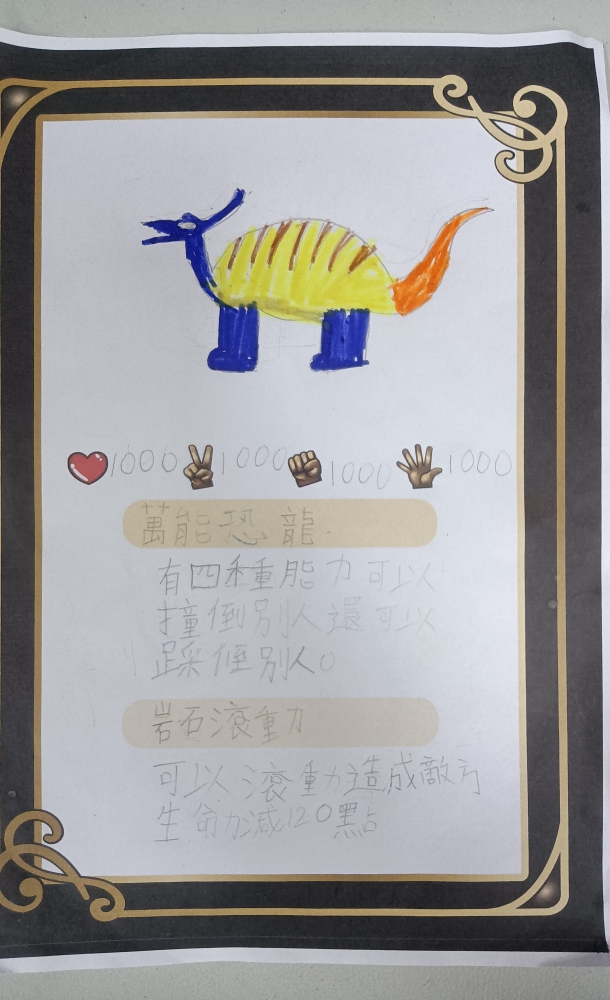 1000 1000 1000 1000
萬能恐龍.
有四種能力可以
撞倒別人還可以
踩倒別人。
岩石滾動
可以滾動造成敵方
生命力減120點